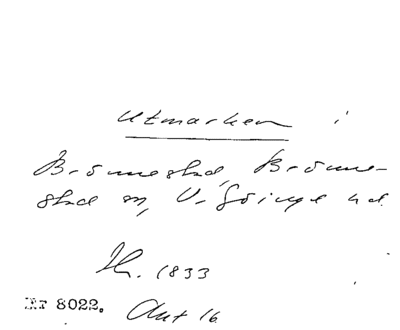 Utmarken i
Brönnestad, Brönne-
stad sn, V. Göinge hd.
Th. 1833
Nr 8022. Akt 16